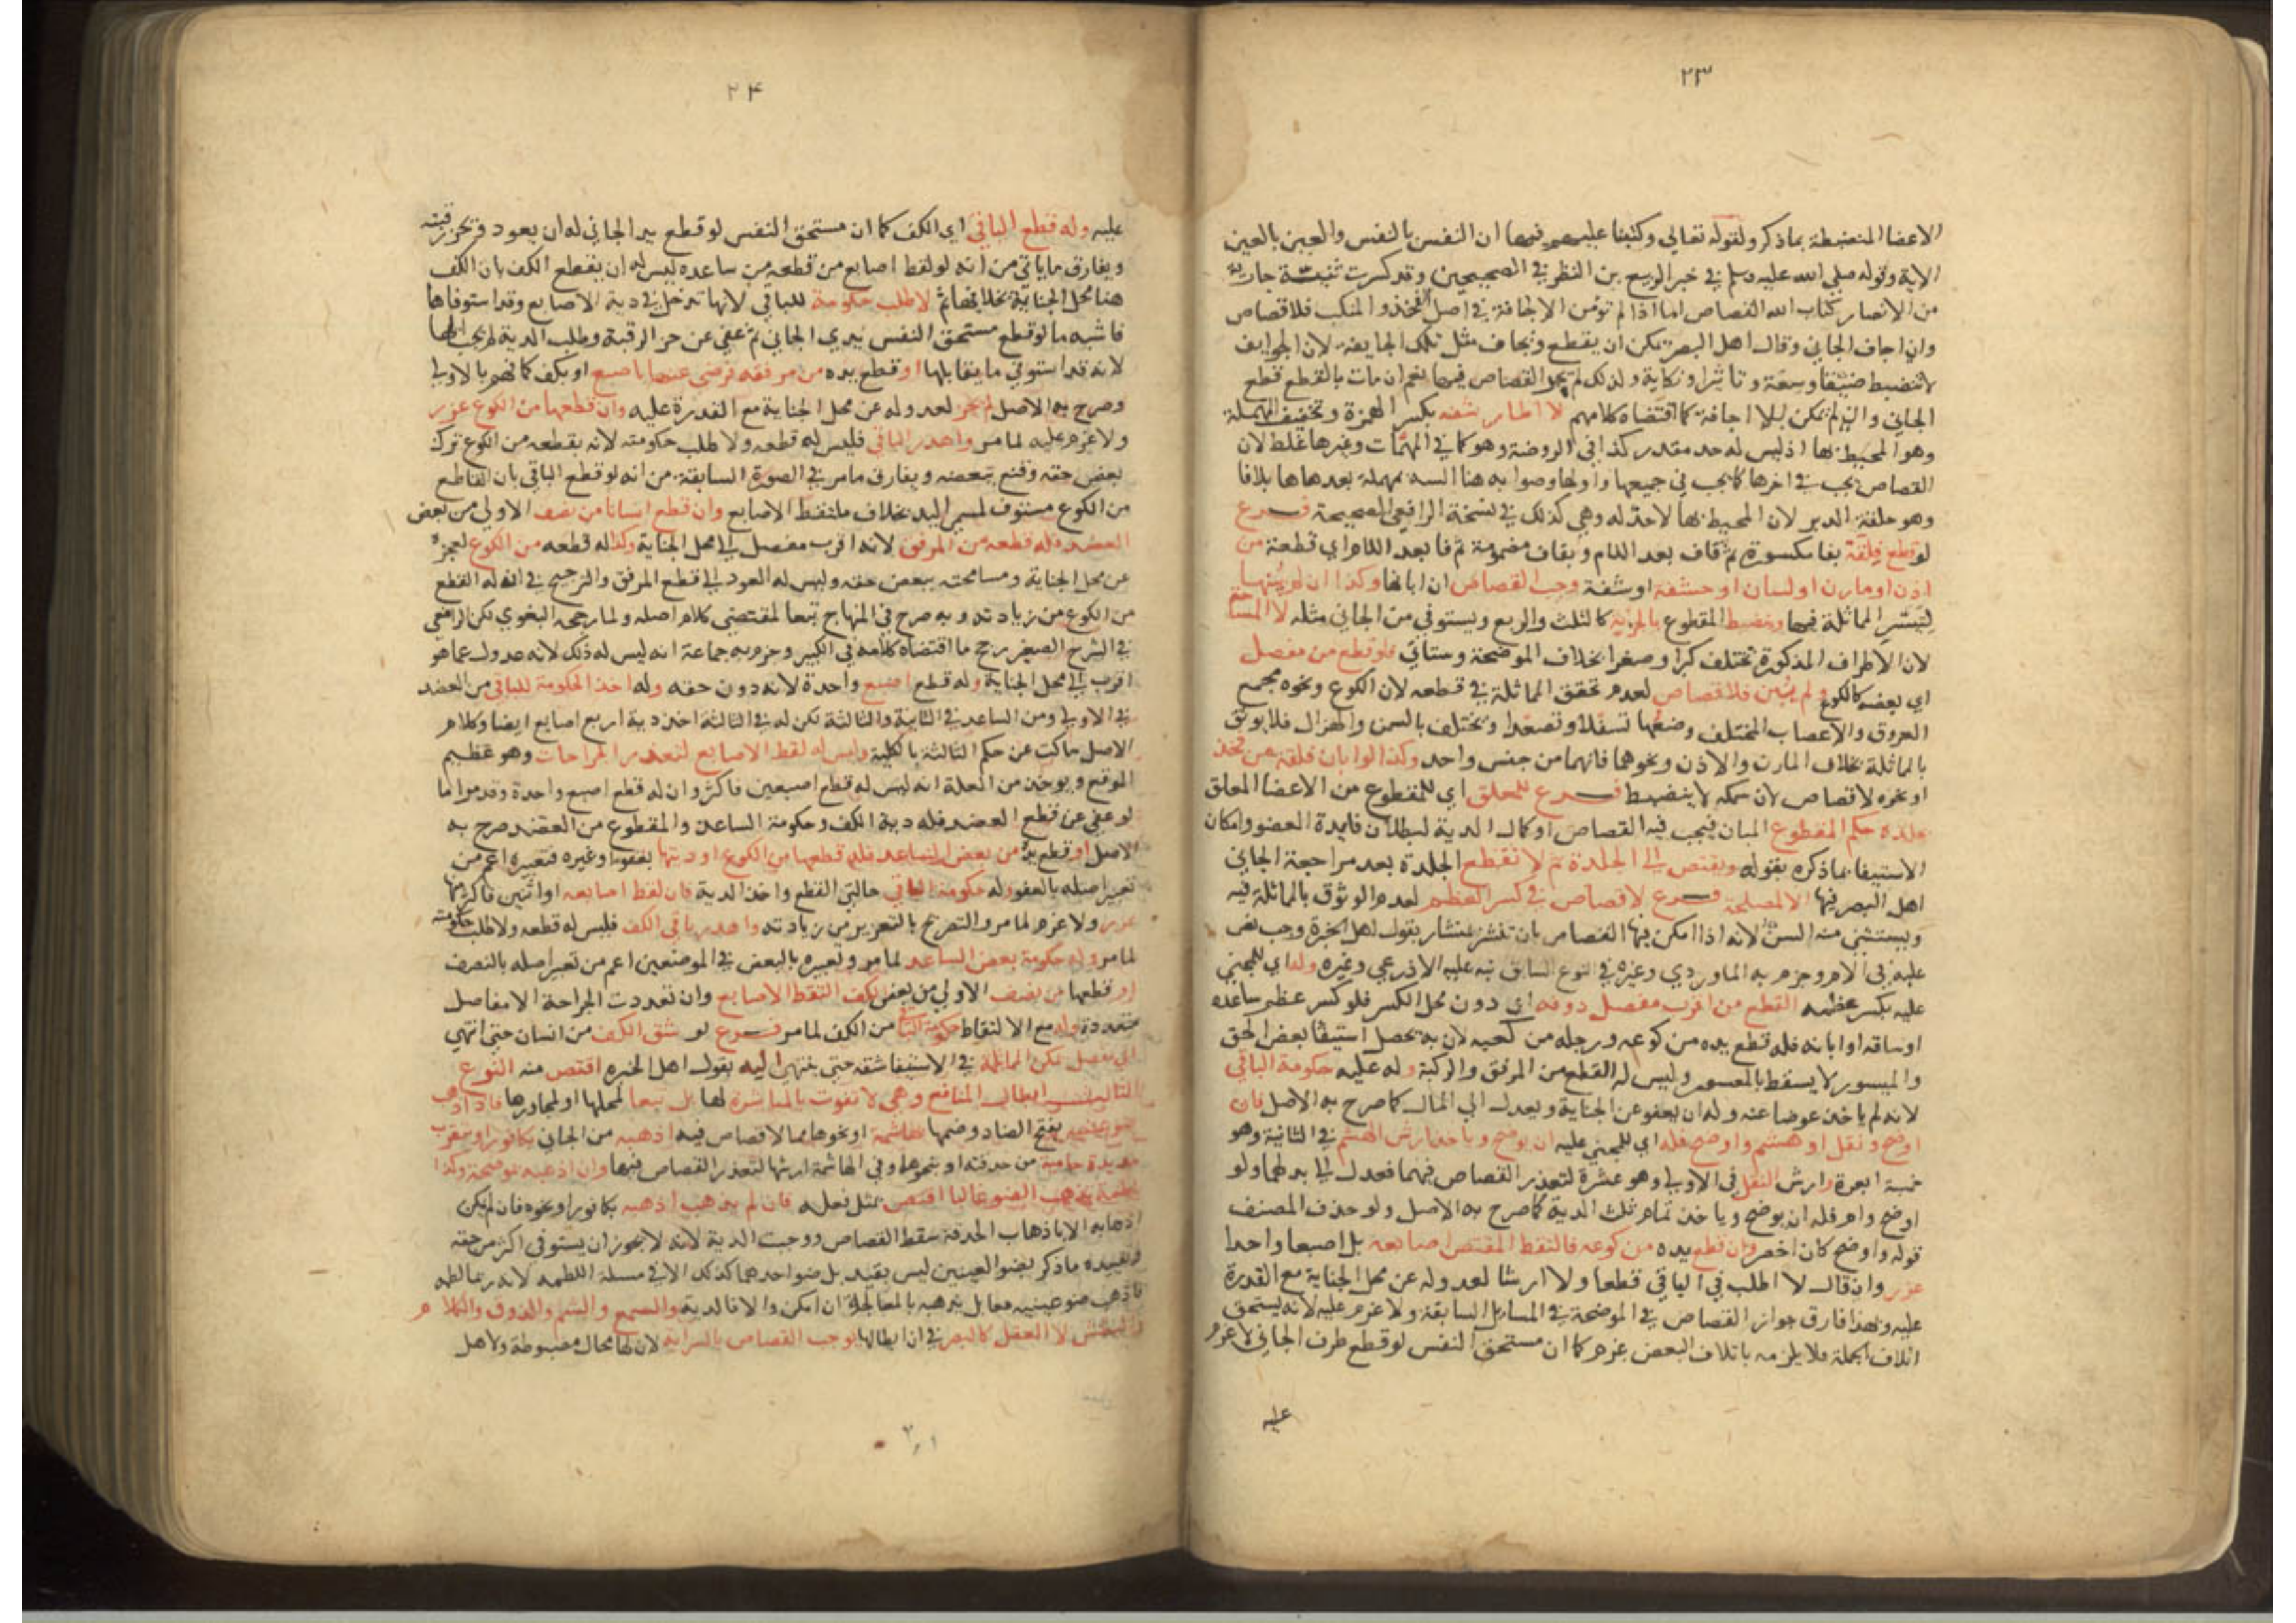 ٢٣
الاعضا المنضبطة بما ذكر ولقوله تعالي وكتبنا عليهم فيها ان النفس بالنفس والعين بالعين
الاية وقوله صلي الله عليه وسلم في خبر الربيع بن النظر في الصحيحين وقد كسرت ثنية جارية
من الانصار كتاب الله القصاص اما اذا لم تومن الاجافة في اصل الفخذ والمنكب فلا قصاص
وان اجاف الجاني وقال اهل البصر يمكن ان يقطع ويجاف مثل تلك الجايفة لان الجوايف
لا تنضبط ضيقا وسعة وتاثيرا ونكاية ولذلك لم يجز القصاص فيها نعم ان مات بالقطع قطع
الجاني وان لم يمكن بلا اجافة كما اقتضاه كلامهم لا اطار شفه بكسر الهمزة وتخفيف المهملة
وهو المحيط بها اذ ليس له حد مقدر كذا في الروضة وهو كما في المهمات وغيرها غلط لان
القصاص يجب في اخرها كما يجب في جميعها واولها وصوابه هنا السه بمهملة بعدها ها بلا فا
وهو حلقة الدبر لان المحيط بها لا حد له وهي كذلك في نسخة الرافعي الصحيحة فرع
لو قطع فلقة بفا مكسورة ثم قاف بعد اللام وبقاف مضمومة ثم فا بعد اللام اي قطعة من
اذن او مارن او لسان او حشفة او شفة وجب القصاص ان ابانها وكذا ان لم يبنها
لتيسر المماثلة فيها ويضبط المقطوع بالجزية كالثلث والربع ويستوفي من الجاني مثله لا المساحة
لان الاطراف المذكورة تختلف كبرا وصغرا بخلاف الموضحة وستاتي فلو قطع من مفصل
اي بعضه كالكوع ولم يبن فلا قصاص لعدم تحقق المماثلة في قطعه لان الكوع ونحوه مجمع
العروق والاعصاب المختلف وضعها تسفلا وتصعدا وتختلف بالسمن والهزال فلا يوثق
بالمماثلة بخلاف المارن والاذن ونحوهما فانهما من جنس واحد وكذا لو ابان فلقة من فخذ
او نحوه لا قصاص لان سمكه لا ينضبط فرع للمعلق اي للمقطوع من الاعضا المعلق
بجلده حكم المقطوع المبان فيجب فيه القصاص او كمال الدية لبطلان فايدة العضو وامكان
الاستيفا بما ذكره بقوله ويقتص الي الجلدة ثم لا تقطع الجلدة بعد مراجعة الجاني
اهل البصر فيها الا لمصلحة فرع لا قصاص في كسر العظم لعدم الوثوق بالمماثلة فيه
ويستثني منه السن لانه اذا امكن فيها القصاص بان تنشر بمنشار بقول اهل الخبرة وجب نص
عليه في الام وجزم به الماوردي وغيره في النوع السابق نبه عليه الاذرعي وغيره وله اي للمجني
عليه بكسر عظمه القطع من اقرب مفصل دونه اي دون محل الكسر فلو كسر عظم ساعده
او ساقه او ابانه فله قطع يده من كوعه ورجله من كعبه لان به تحصل استيفا بعض الحق
والميسور لا يسقط بالمعسور وليس له القطع من المرفق والركبة وله عليه حكومة الباقي
لانه لم ياخذ عوضا عنه وله ان يعفو عن الجناية ويعدل الي المال كما صرح به الاصل فان
اوضح ونقل او هشم واوضح فله اي للمجني عليه ان يوضح وياخذ ارش الهشم في الثانية وهو
خمسة ابعرة وارش النقل في الاولي وهو عشرة لتعذر القصاص فيهما فعدل الي بدلهما ولو
اوضح وام فله ان يوضح وياخذ تمام ثلث الدية كما صرح به الاصل ولو حذف المصنف
قوله واوضح كان اخصر وان قطع يده من كوعه فالتقط المقتص اصابعه بل اصبعا واحدا
عزر وان قال لا اطلب في الباقي قطعا ولا ارشا لعدوله عن محل الجناية مع القدرة
عليه وبهذا فارق جواز القصاص في الموضحة في المسايل السابقة ولا غرم عليه لانه يستحق
اتلاف الجملة فلا يلزمه باتلاف البعض غرم كما ان مستحق النفس لو قطع طرف الجاني لا غرم
عليه
٢٤
عليه وله قطع الباقي اي الكف كما ان مستحق النفس لو قطع يد الجاني له ان يعود ويحز رقبته
ويفارق ما ياتي من انه لو لقط اصابع من قطعه من ساعده ليس له ان يقطع الكف بان الكف
هنا محل الجناية بخلافها ثم لا طلب حكومة للباقي لانها تدخل في دية الاصابع وقد استوفاها
فاشبه ما لو قطع مستحق النفس يدي الجاني ثم عفي عن حز الرقبة وطلب الدية لم يجب اليها
لانه قد استوفي ما يقابلها او قطع يده من مرفقه فرضي عنها باصبع او بكف كما فهم بالاولي
وصرح به الاصل لم يجز لعدوله عن محل الجناية مع القدرة عليه وان قطعها من الكوع عزر
ولا غرم عليه لما مر واهدر الباقي فليس له قطعه ولا طلب حكومته لانه بقطعه من الكوع ترك
بعض حقه وقنع ببعضه ويفارق ما مر في الصورة السابقة من انه لو قطع الباقي بان القاطع
من الكوع مستوف لمسمي اليد بخلاف ملتقط الاصابع وان قطع انسانا من نصف الاولي من بعض
العضد فله قطعه من المرفق لانه اقرب مفصل الي محل الجناية وكذا له قطعه من الكوع لعجزه
عن محل الجناية ومسامحته ببعض حقه وليس له العود الي قطع المرفق والترجيح في ان له القطع
من الكوع من زيادته وبه صرح في المنهاج تبعا لمقتضي كلام اصله ولما رجحه البغوي لكن الرافعي
في الشرح الصغير رجح ما اقتضاه كلامه في الكبير وجزم به جماعة انه ليس له ذلك لانه عدول عما هو
اقرب الي محل الجناية وله قطع اصبع واحدة لانه دون حقه وله اخذ الحكومة للباقي من العضد
في الاولي ومن الساعد في الثانية والثالثة لكن له في الثالثة اخذ دية اربع اصابع ايضا وكلام
الاصل ساكت عن حكم الثالثة بالكلية وليس له لقط الاصابع لتعدد الجراحات وهو عظيم
الموقع ويوخذ من العلة انه ليس له قطع اصبعين فاكثر وان له قطع اصبع واحدة وقدم اما
لو عفي عن قطع العضد فله دية الكف وحكومة الساعد والمقطوع من العضد صرح به
الاصل او قطع يده من بعض الساعد فله قطعها من الكوع او ديتها بعفو او غيره فتعبيره اعم من
تعبير اصله بالعفو وله حكومة الباقي حالتي القطع واخذ الدية فان لقط اصابعه او اثنين فاكثر منها
عزر ولا غرم لما مر والتصريح بالتعزير من زيادته واهدر باقي الكف فليس له قطعه ولا طلب حكومته
لما مر وله حكومة بعض الساعد لما مر وتعبيره بالبعض في الموضعين اعم من تعبير اصله بالنصف
او قطعها من نصف الاولي من بعض الكف التقط الاصابع وان تعددت الجراحة الا مفاصل
متعددة وله مع الالتقاط حكومة الباقي من الكف لما مر فرع لو شق الكف من انسان حتي انتهي
الي مفصل تمكن المماثلة في الاستيفا شقه حتي ينتهي اليه بقول اهل الخبره اقتص منه النوع
الثالث ابطال المنافع وهي لا تفوت بالمباشرة لها بل تبعا لمحلها او لمجاورها فاذا ذهب
ضو عينيه بفتح الضاد وضمها بهاشمة او نحوها مما لا قصاص فيه اذهبه من الجاني بكافور او بتقريب
حديدة حامية من حدقته او نحوها وفي الهاشمة ارشها لتعذر القصاص فيها وان اذهبه بموضحة وكذا
بلطمة يذهب الضو غالبا اقتص بمثل فعله فان لم يذهب اذهبه بكافور او نحوه فان لم يكن
اذهابه الا باذهاب الحدقة سقط القصاص ووجبت الدية لانه لا يجوز ان يستوفي اكثر من حقه
وتقييده ما ذكر بضو العينين ليس بقيد بل ضو احدهما كذلك الا في مسلة اللطمه لانه ربما لطمه
فاذهب ضو عينيه فقابل يذهبه بالمعالجة ان امكن والا فالدية والسمع والشم والذوق والكلام
والبطش لا العقل كالبصر في ان ابطالها يوجب القصاص بالسراية لان لها محال مضبوطة ولاهل